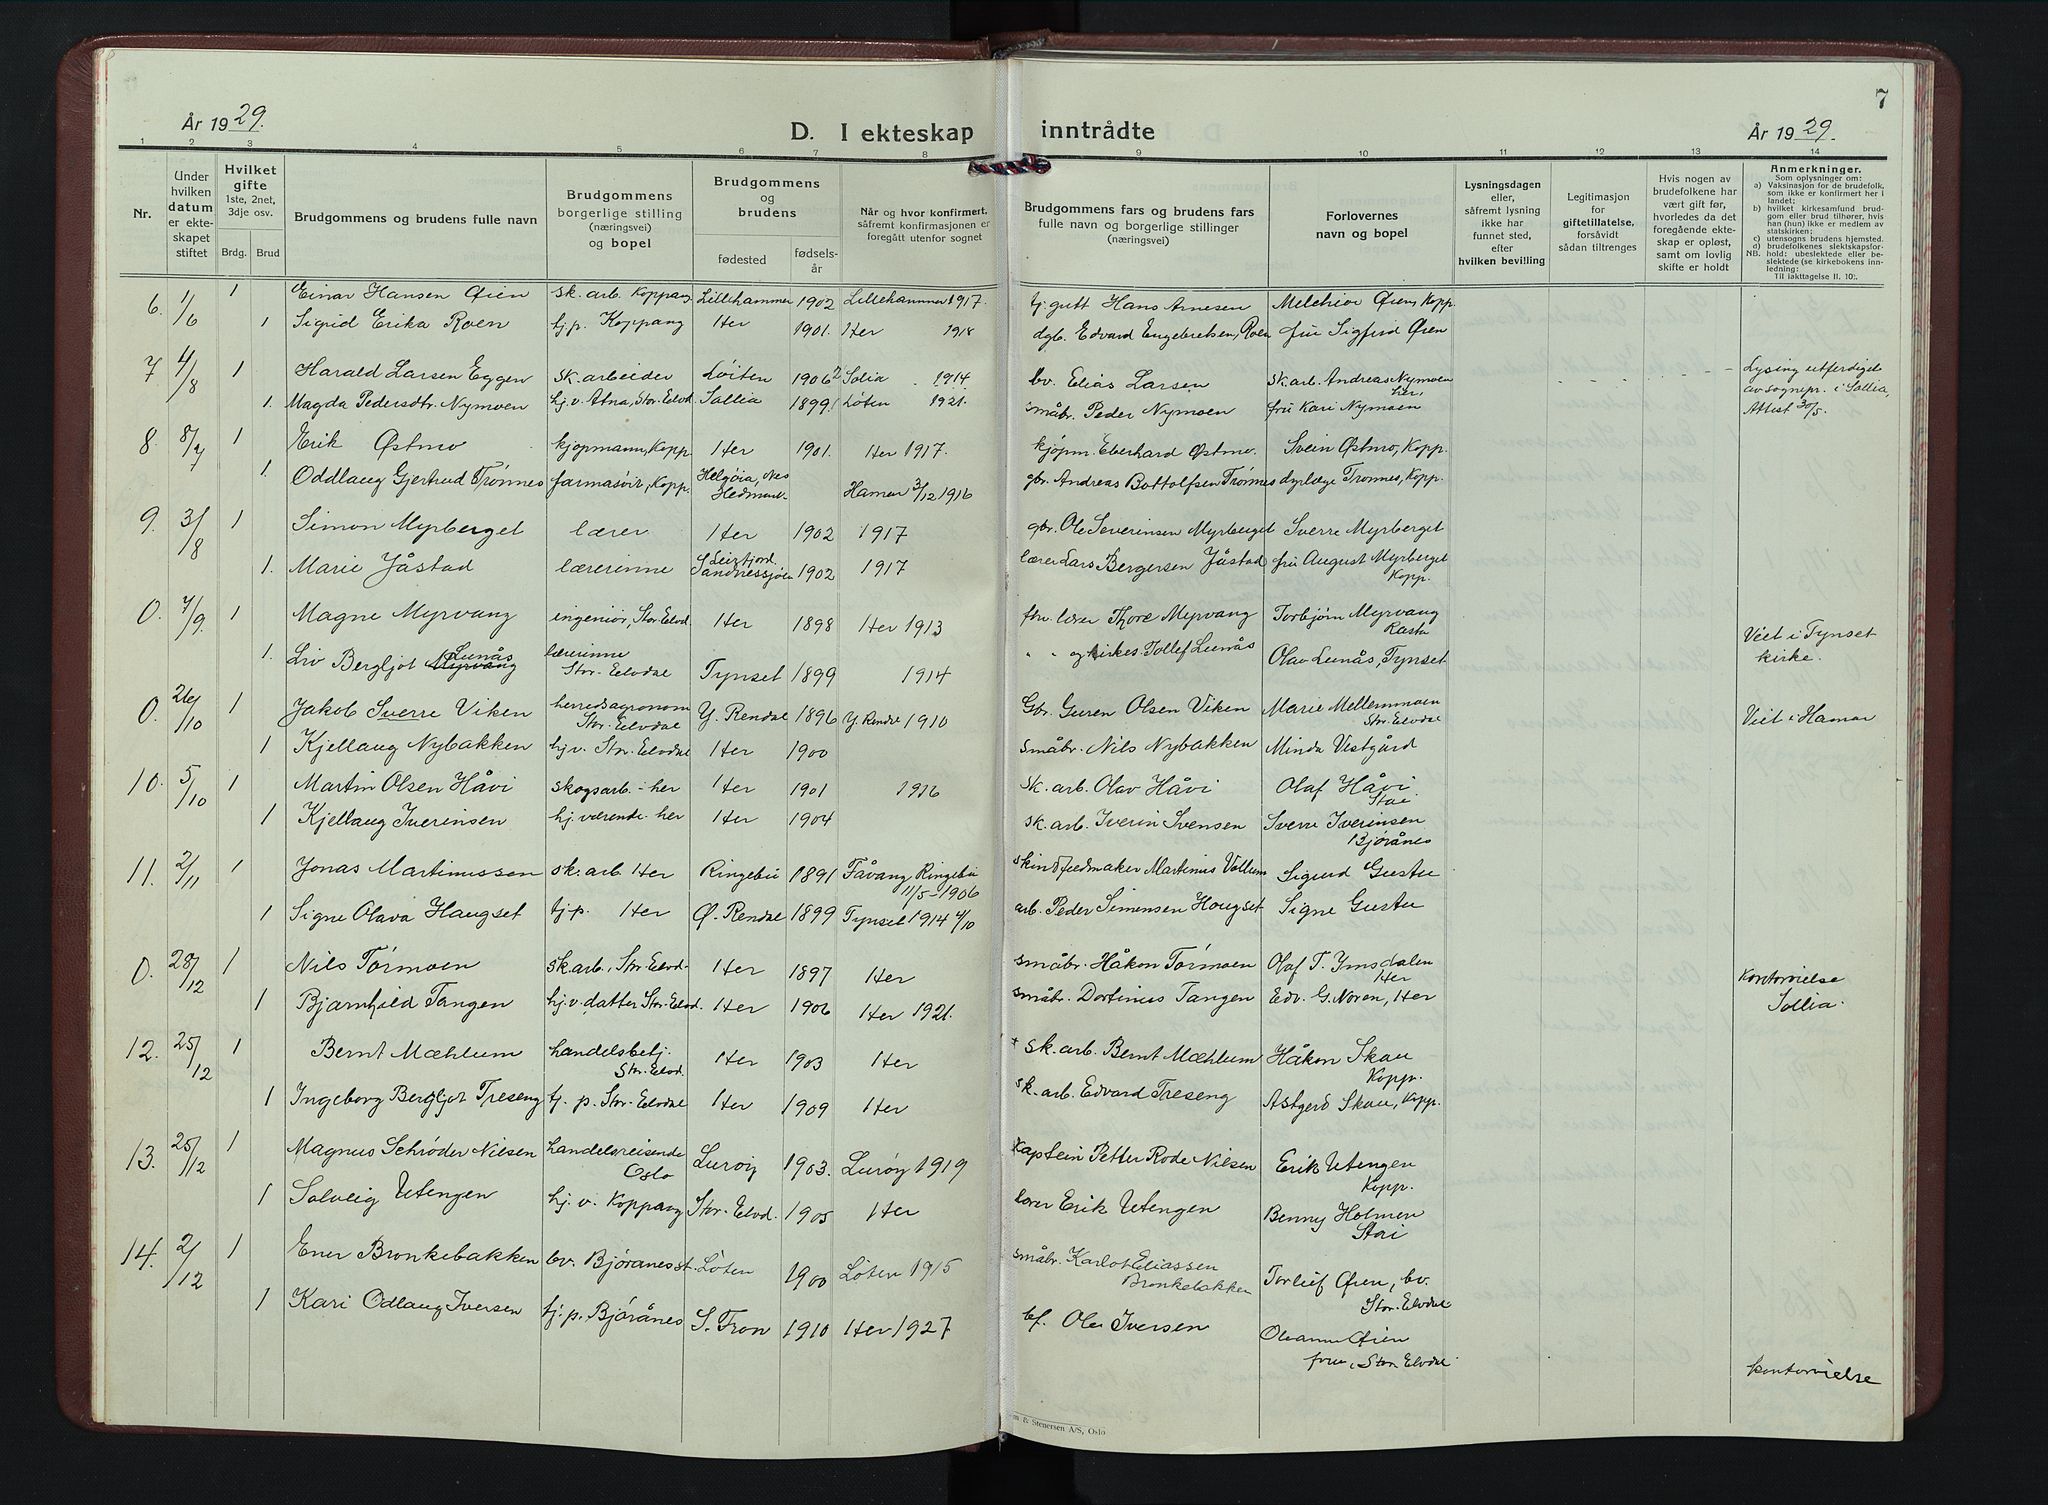 7
År 1929.
D. I ekteskap inntrådte
År 1929.
1 2 3 4 5 6 7 8 9 10 11 12 13 14
Nr.
Under hvilken datum er ekteskapet stiftet
Hvilket gifte 1ste, 2net, 3dje osv.
Brdg. Brud
Brudgommens og brudens fulle navn
Brudgommens borgerlige stilling (næringsvei) og bopel
Brudgommens og brudens
fødested
fødselsår
Når og hvor konfirmert, såfremt konfirmasjonen er foregått utenfor sognet
Brudgommens fars og brudens fars fulle navn og borgerlige stillinger (næringsvei)
Forlovernes navn og bopel
Lysningsdagen eller, såfremt lysning ikke har funnet sted, efter hvilken bevilling
Legitimasjon for giftetillatelse, forsåvidt sådan tiltrenges
Hvis nogen av brudefolkene har vært gift før, hvorledes da det foregående ekteskap er opløst, samt om lovlig skifte er holdt
Anmerkninger.
Som oplysninger om:
a) Vaksinasjon for de brudefolk, som ikke er konfirmert her i landet;
b) hvilket kirkesamfund brudgom eller brud tilhører, hvis han (hun) ikke er medlem av statskirken;
c) utensogns brudens hjemsted.
d) brudefolkenes slektskapsforhold: ubeslektede eller beslektede (se kirkebokens innledning:
NB.
Til iakttagelse II. 10).
6. 1/6 1 Einar Hansen Øien sk. arb. Koppang Lillehammer 1902 Lillehammer 1917. tj. gutt Hans Arnesen Melchior Øien, Kopp.
1 Sigrid Erika Roen tj. p. Koppang Her 1901. Her 1918 dgb. Edvard Engebretsen, Roen fru Sigfrid Øien
7 4/8 1 Harald Larsen Eggen sk. arbeider Løiten 1906 2 Solia 1914. bv. Elias Larsen sk. arb. Andreas Nymoen her, Lysing utferdiget
1. Magda Pedersdtr. Nymoen hj. v. Atna, Stor-Elvd. Sollia 1899 Løten 1921. småbr. Peder Nymoen fru Kari Nymoen av sognepr. i Sollia,
Attest 30/5.
8. 8/7 1 Erik Østmo kjøpmann, Kopp Her 1901. Her 1917. kjøpm. Eberhard Østmo. Svein Østmo, Kopp.
1. Oddlaug Gjertrud Trønnes farmasøit, Kopp. Helgøia, Nes Hedmark Hamar 3/12 1916 gbr. Andreas Bottolfsen Trønnes dyrlæge Trønnes, Kopp.
9. 3/8 1 Simon Myrberget lærer Her 1902 1917 gbr. Ole Severinsen Myrberget Sverre Myrberget
1. Marie Jåstad lærerinne Leirfjord Sandnessjøen 1902 1917 lærer Lars Bergersen Jåstad fru August Myrberget Kopp.
0. 7/9. 1 Magne Myrvang ingeniør, Stor-Elvd. Her 1898 Her 1913 fhv. lærer Thore Myrvang Torbjørn Myrvang Rasta
1. Liv Bergljot Myrvang Lunås lærerinne Stor-Elvdal Tynset 1899 1914 " " og kirkes. Tollef Lunås Olav Lunås, Tynset Viet i Tynset kirke.
0. 26/10 1 Jakob Sverre Viken herredsagronom Stor-Elvdal Y. Rendal 1896 Y. Rendal 1910 Gbr. Guren Olsen Viken Marie Mellemmoen Stor-Elvdal Viet i Hamar
1 Kjellaug Nybakken hj. v. Stor-Elvdal Her 1900 småbr. Nils Nybakken Minda Vestgård
10. 5/10 1 Martin Olsen Håvi skogsarb. - her Her 1901 1916 sk. arb. Olav Håvi Olaf Håvi Stai
1 Kjellaug Iverinsen hj. værende - her Her 1904 sk. arb. Iverin Svensen Sverre Iverinsen Bjørånes
11. 2/11 1 Jonas Martinussen sk. arb. Her Ringebu 1891 Fåvang, Ringebu 11/5 - 1906 skindfeldmaker Martinus Vollum Sigurd Gustu
1 Signe Olava Haugset tj. p. Her Ø. Rendal 1899 Tynset 1914 4/10 arb. Peder Simensen Hougset Signe Gustu
0. 28/12 1 Nils Tørmoen sk. arb., Stor-Elvd. Her 1897 Her småbr. Håkon Tørmoen Olaf T. Imsdalen Her kontorvielse
1 Bjarnhild Tangen hj. v. datter Stor-Elvd. Her 1906 Her 1921. småbr. Dortinus Tangen Edv. G. Noren, Her Sollia.
12. 25/12 1 Bernt Mæhlum handelsbetj. Stor-Elvd. Her 1903 Her + sk. arb. Bernt Mæhlum Håkon Skau Kopp.
1 Ingeborg Bergljot Treseng tj. p. Stor-Elvdal Her 1909 Her sk. arb. Edvard Treseng Astgerd Skau, Kopp.
13. 25/12 1 Magnus Schrøder Nilsen handelsreisende Oslo Lurøy 1903. Lurøy 1919 Kaptein Petter Rode Nilsen Erik Utengen Kopp.
1 Solveig Utengen hj. v. Koppang Stor-Elvd. 1905 Her lærer Erik Utengen Benny Holmen Stai
14. 2/12 1 Ener Bronkebakken bv. Bjøranes st. Løten 1900 Løten 1915 småbr. Karlot Eliassen Bronkebakken Torleif Øien, bv. Stor-Elvdal
1 Kari Odlaug Iversen tj. p. Bjørånes S. Fron 1910 Her 1927 bf. Ole Iversen Oleanna Øien fru, Stor-Elvdal
kontorvielse
& Stenersen A/S, Oslo